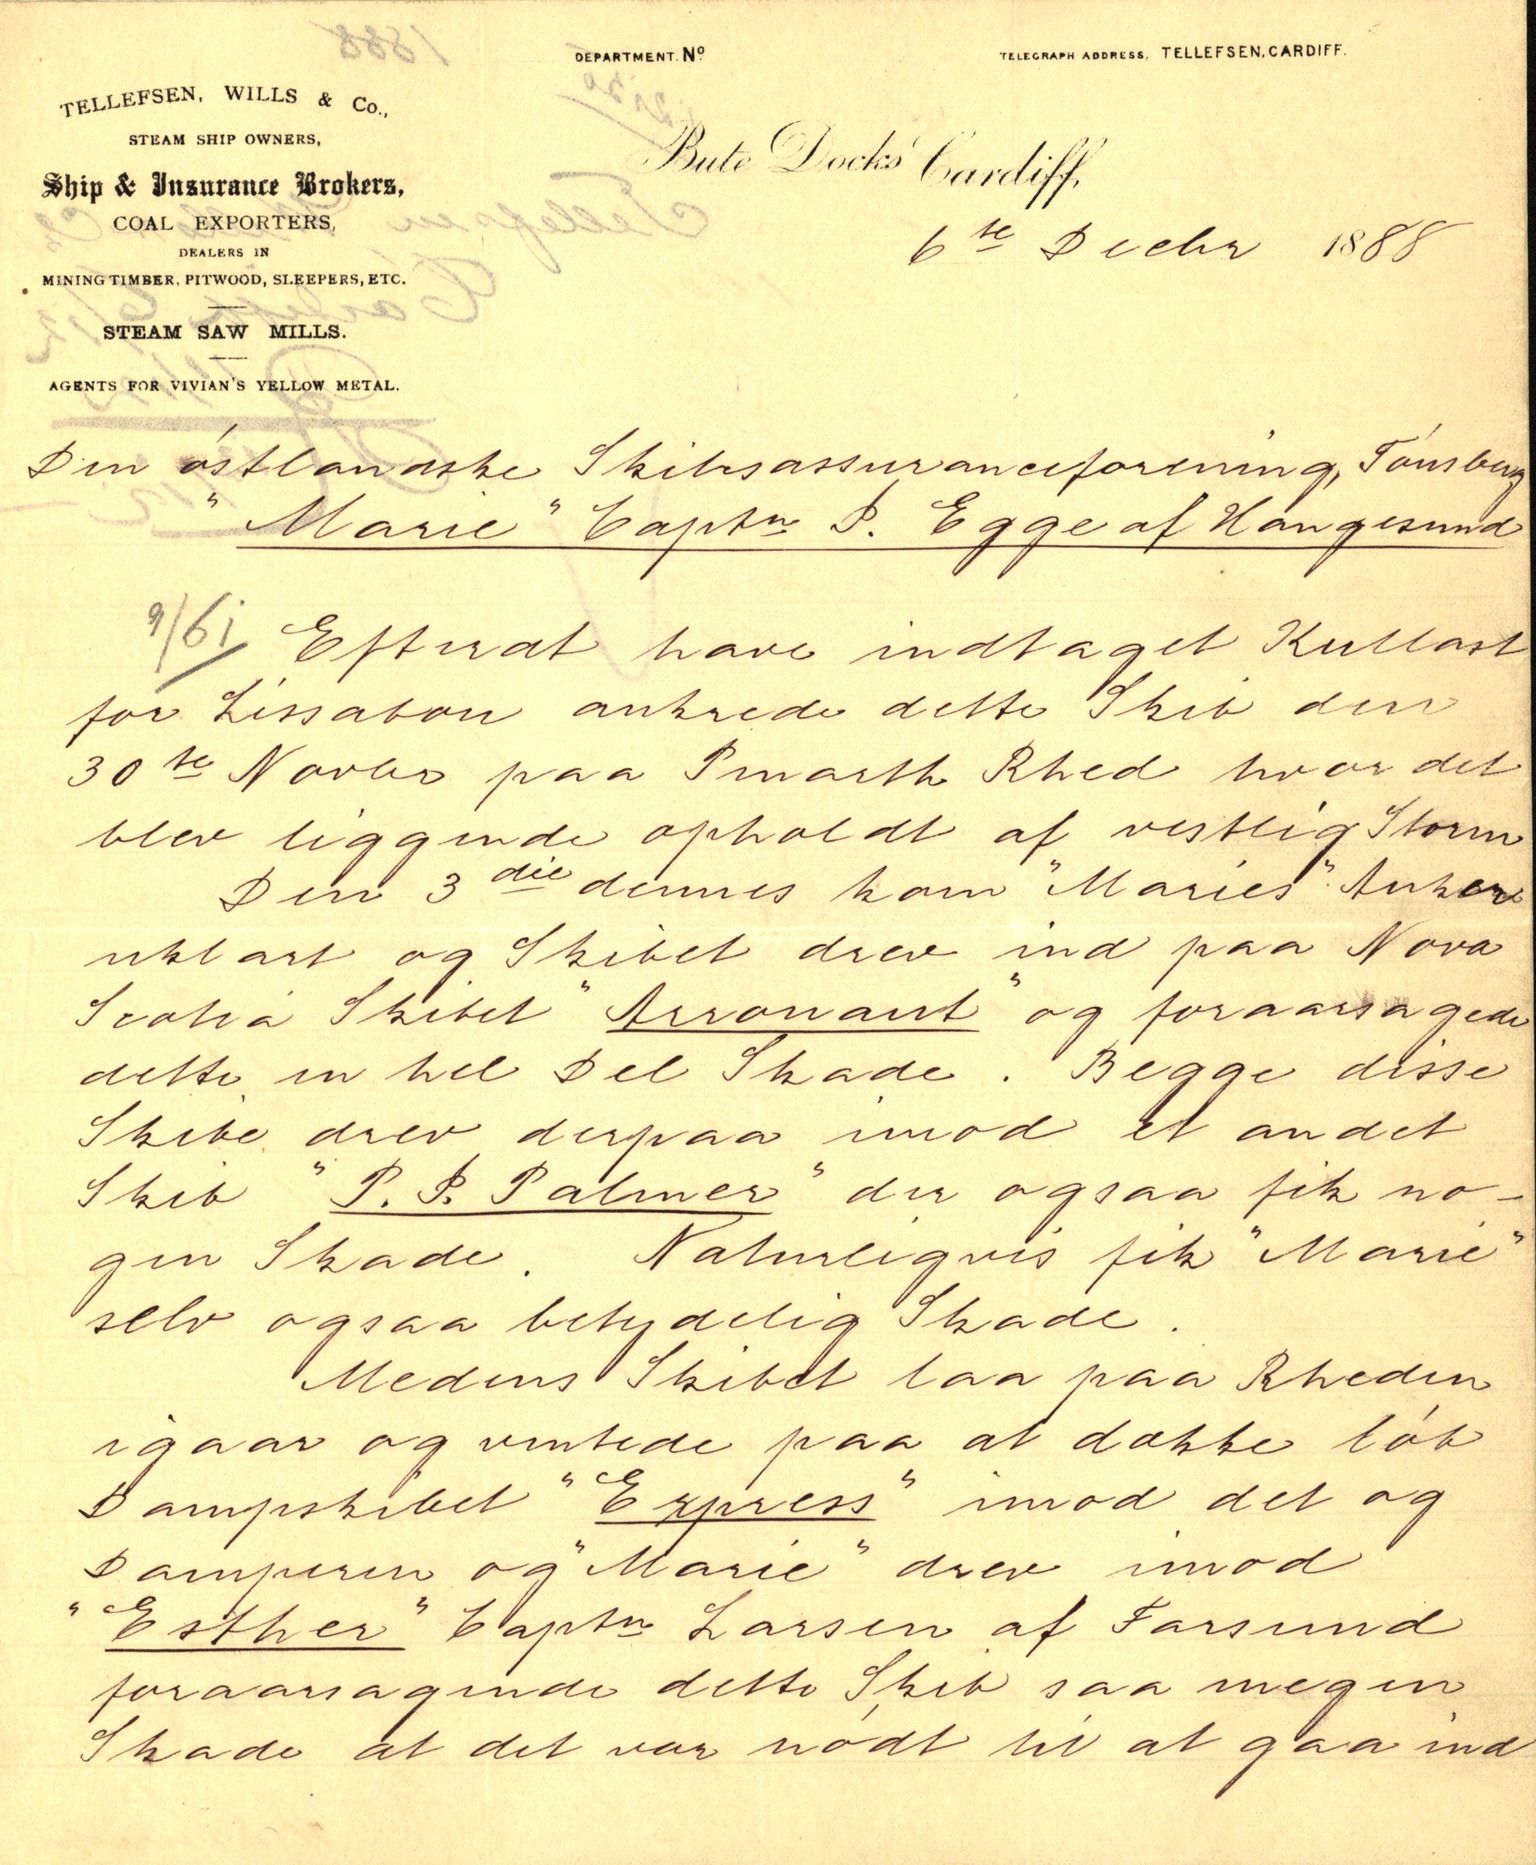 DEPARTMENT. Nº
TELEGRAPH ADDRESS, TELLEFSEN, CARDIFF.
TELLEFSEN, WILLS & Co.,
STEAM SHIP OWNERS,
Ship & Insurance Brokers,
COAL EXPORTERS,
DEALERS IN
MINING TIMBER, PITWOOD, SLEEPERS, ETC.
STEAM SAW MILLS.
AGENTS FOR VIVIAN'S YELLOW METAL.
Bute Docks Cardiff,
6te Decbr 1888
Den östlandske Skibsassuranceforening, Tönsberg
"Marie" Captn P. Egge af Haugesund
9/61 Efterat have indtaget Kullast
for Lissabon ankrede dette Skib den
30te Novbr paa Pnarth Rhed hvor det
blev liggende opholdt af vestlig Storm
Den 3die dennes kom "Maries" Anker
uklart og Skibet drev ind paa Nova
Scotia Skibet "Arronaut" og foraarsagede
dette en hel Del Skade. Begge disse
Skibe drev derpaa imod et andet
Skib "P. P. Palmer" der ogsaa fik no-
gen Skade. Naturligvis fik "Marie"
selv ogsaa betydelig Skade.
Medens Skibet laa paa Rheden
igaar og ventede paa at dokke löb
Dampskibet "Express" imod det og
Damperen og "Marie" drev imod
"Esther" Captn Larsen af Farsund
foraarsagende dette Skib saa megen
Skade at det var nödt til at gaa ind